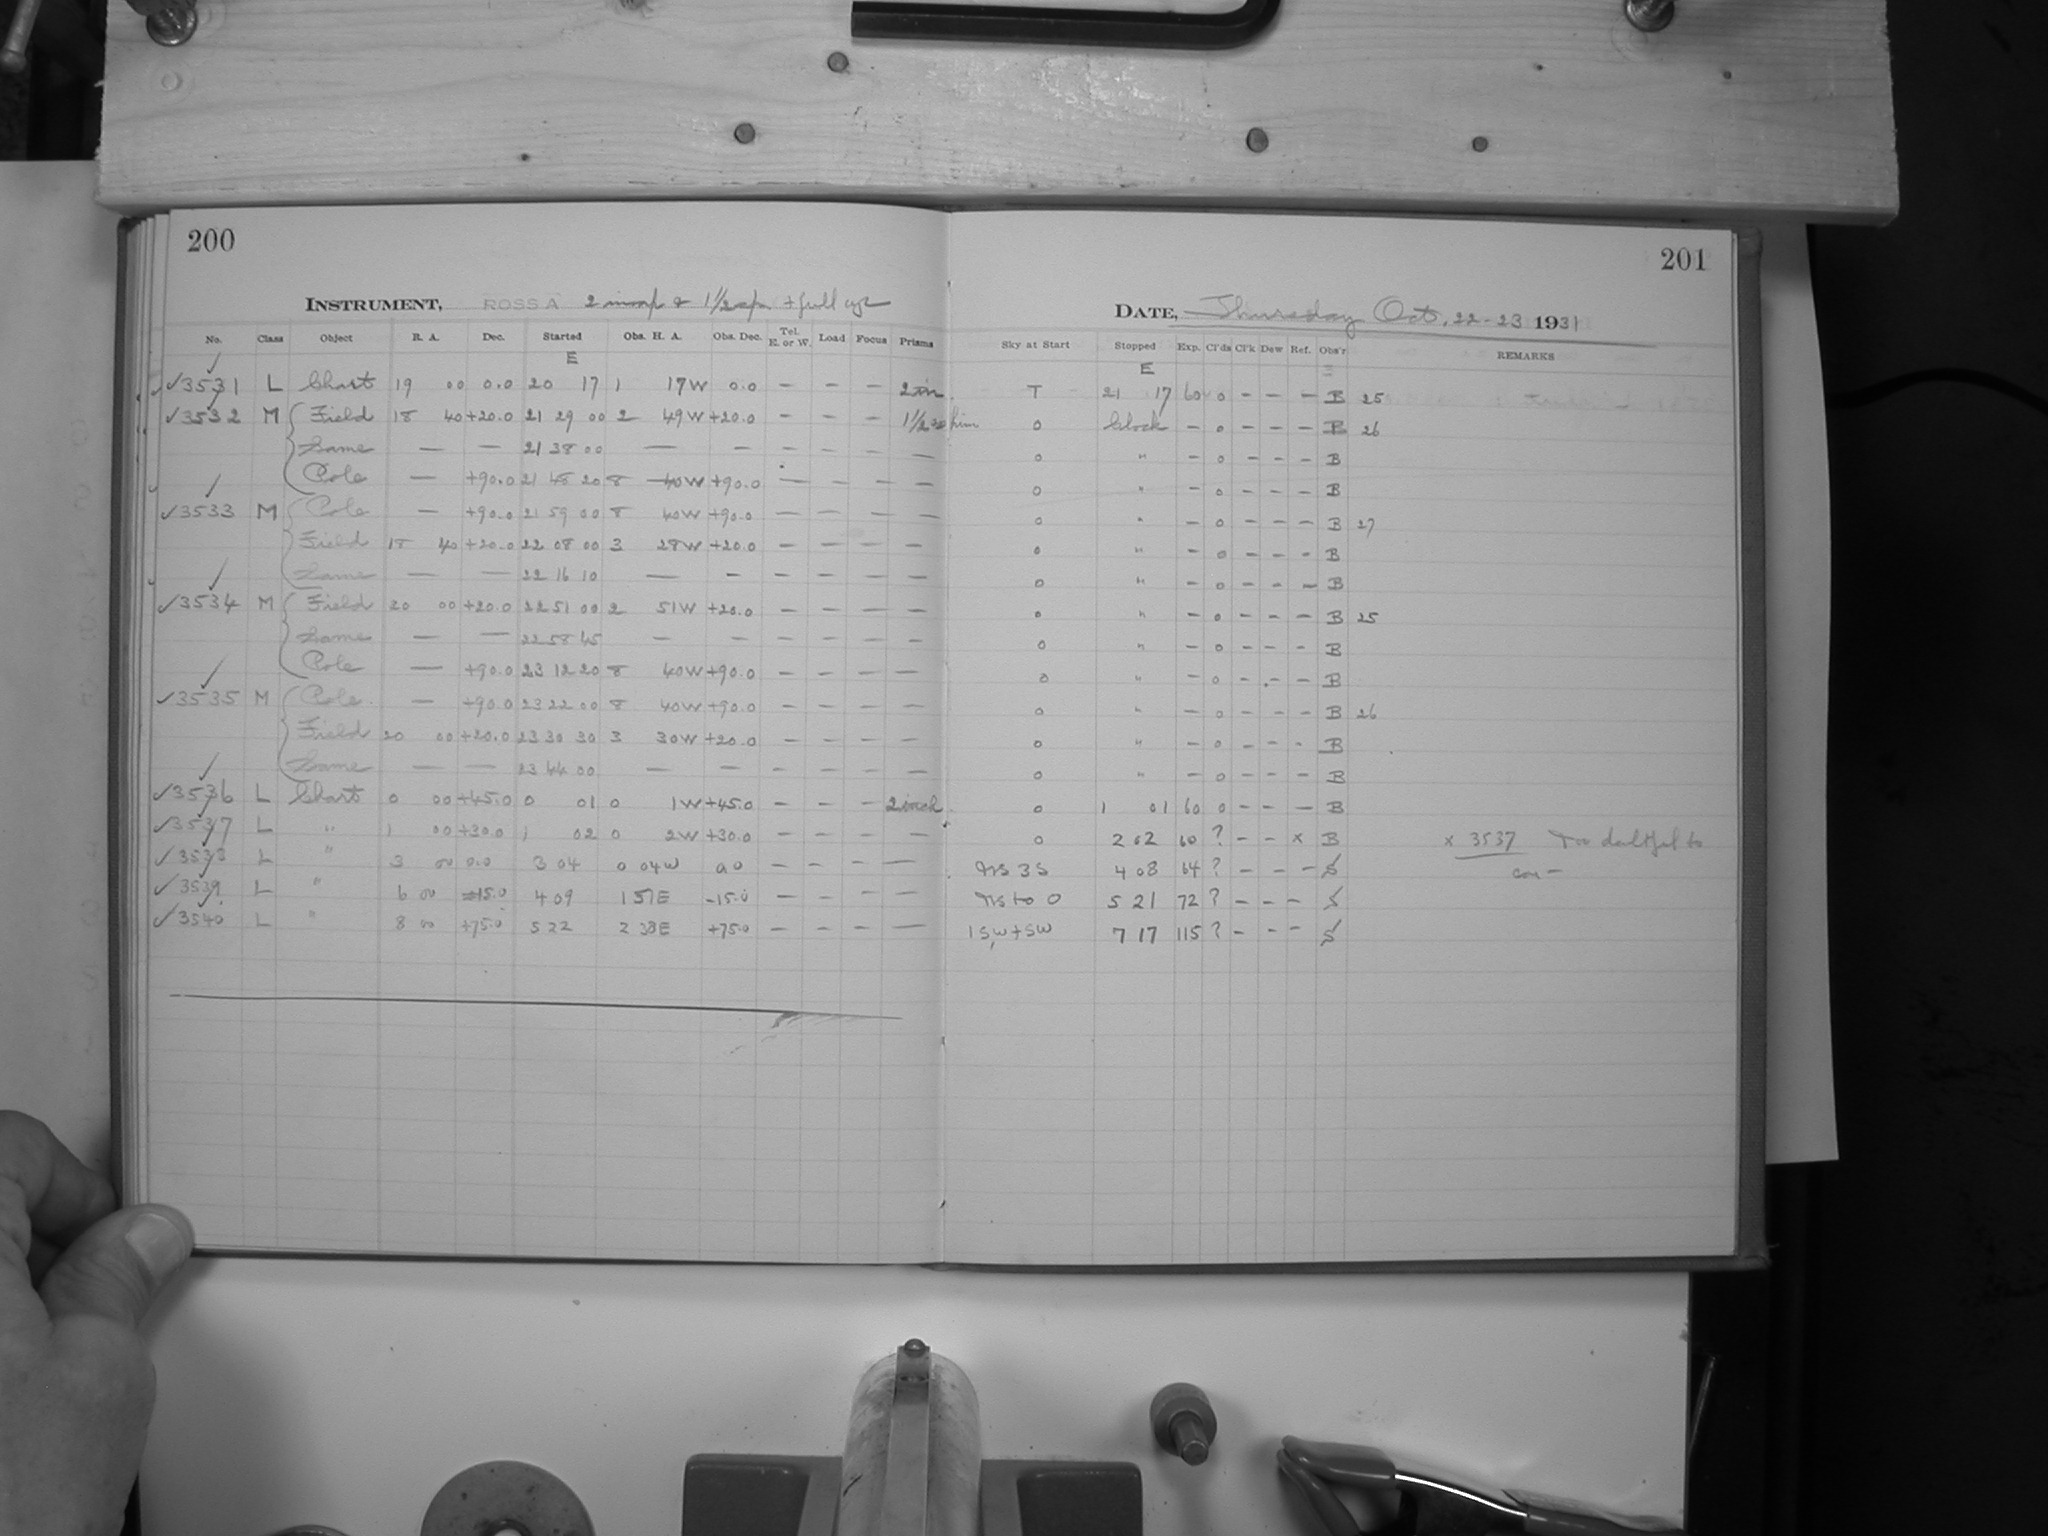 200
INSTRUMENT, ROSS A 2 & 1½ + full
No. Class Object R. A. Dec. Started Obs. H. A. Obs. Dec. Tel. E. or W. Load Focus Prisms
E
✓3531 L Chart 19 00 0.0 20 17 1 17W 0.0 — — — 2 in
✓3532 M Field 18 40 +20.0 21 29 00 2 49W +20.0 — — — 1½
Same — — 21 38 00 — — — — — —
Pole — +90.0 21 48 20 8 40W +90.0 — — — —
✓3533 M Pole — +90.0 21 59 00 8 40W +90.0 — — — —
Field 18 40 +20.0 22 08 00 3 28W +20.0 — — — —
Same — — 22 16 10 — — — — — —
✓3534 M Field 20 00 +20.0 22 51 00 2 51W +20.0 — — — —
Same — — 22 58 45 — — — — — —
Pole — +90.0 23 12 20 8 40W +90.0 — — — —
✓3535 M Pole — +90.0 23 22 00 8 40W +90.0 — — — —
Field 20 00 +20.0 23 30 30 3 30W +20.0 — — — —
Same — — 23 44 00 — — — — — —
✓3536 L Chart 0 00 +45.0 0 01 0 1W +45.0 — — — 2 inch
✓3537 L " 1 00 +30.0 1 02 0 2W +30.0 — — — —
✓3538 L " 3 00 0.0 3 04 0 04W 0.0 — — — —
✓3539 L " 6 00 -15.0 4 09 1 51E -15.0 — — — —
✓3540 L " 8 00 +75.0 5 22 2 38E +75.0 — — — —
201
DATE, Thursday Oct. 22-23 1931
Sky at Start Stopped Exp. Cl'ds Cl'k Dew Ref. Obs'r REMARKS
E
T 21 17 60 0 — — — B 25
0 Clock — 0 — — — B 26
0 " — 0 — — — B
0 " — 0 — — — B
0 " — 0 — — — B 27
0 " — 0 — — — B
0 " — 0 — — — B
0 " — 0 — — — B 25
0 " — 0 — — — B
0 " — 0 — — — B
0 " — 0 — — — B 26
0 " — 0 — — — B
0 " — 0 — — — B
0 1 01 60 0 — — — B
0 2 02 60 ? — — x B x 3537 Too doubtful to
3S 4 08 64 ? — — — S
to 0 5 21 72 ? — — — S
1 SW + SW 7 17 115 ? — — — S